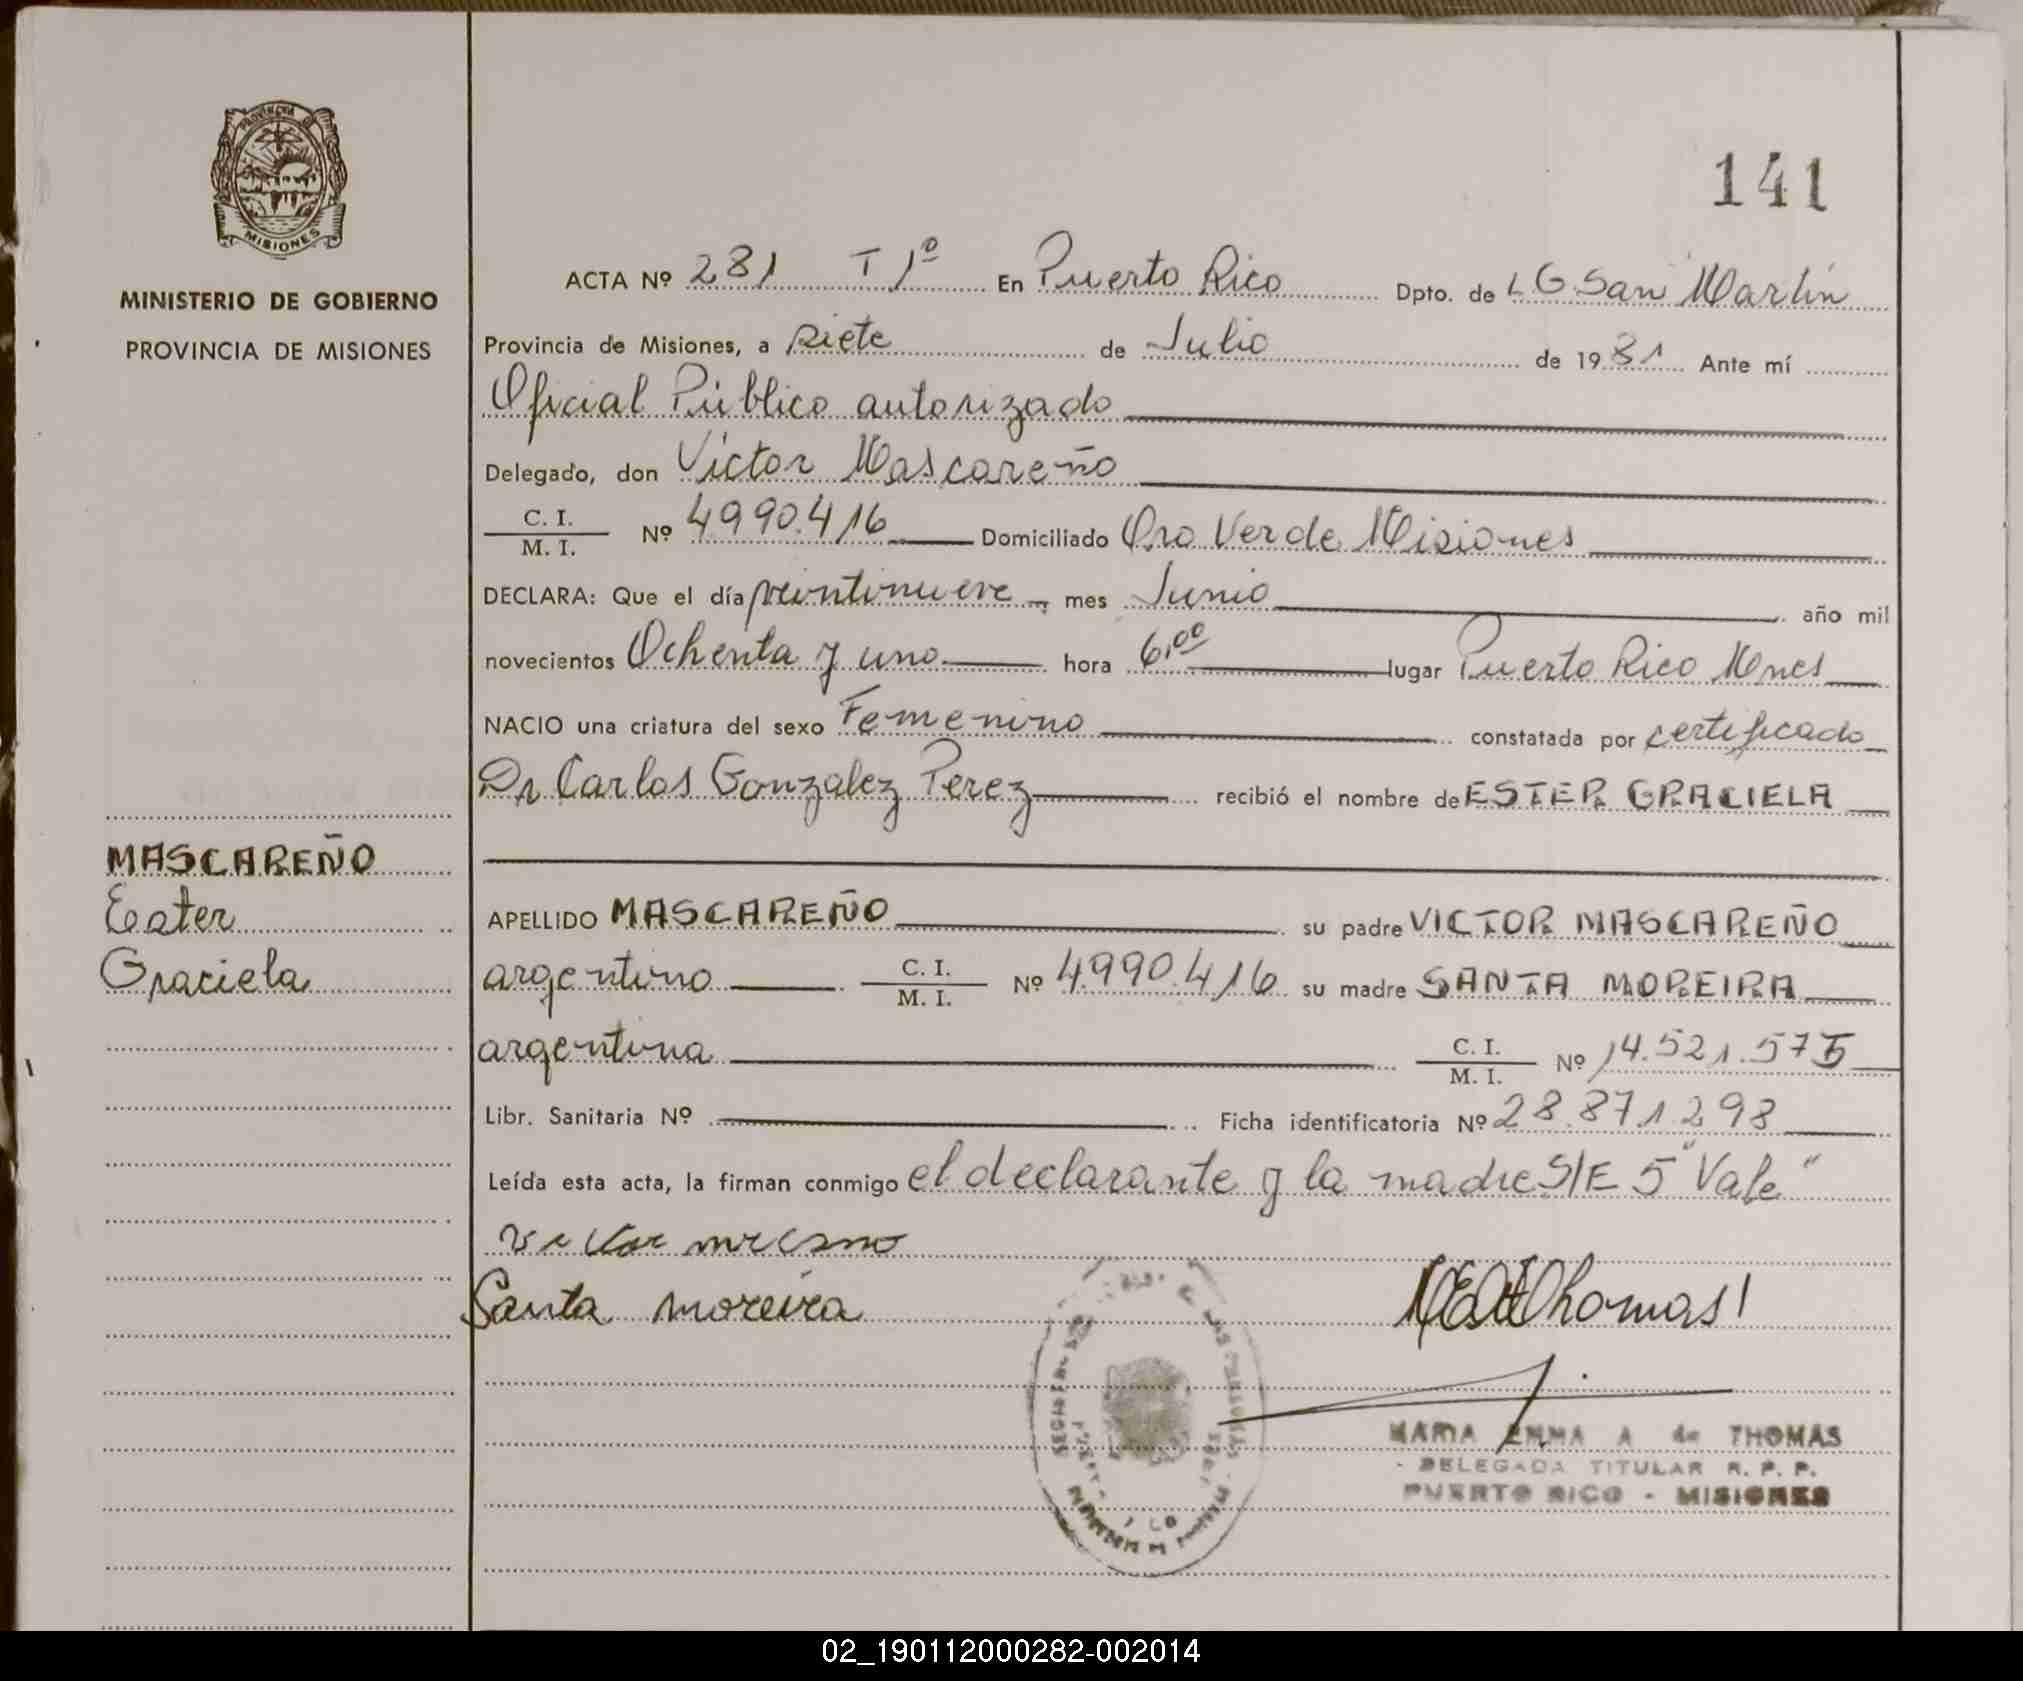 141
PROVINCIA DE
MISIONES
MINISTERIO DE GOBIERNO
PROVINCIA DE MISIONES
ACTA Nº 281 T 1º En Puerto Rico Dpto. de L G San Martín
Provincia de Misiones, a siete de Julio de 1981 Ante mí
Oficial Público autorizado
Delegado, don Victor Mascareño
C. I.
M. I. Nº 4.990.416 Domiciliado Oro Verde Misiones
DECLARA: Que el día veintinueve mes Junio año mil
novecientos Ochenta y uno hora 6,00 lugar Puerto Rico Mnes
NACIO una criatura del sexo Femenino constatada por certificado
Dr Carlos Gonzalez Perez recibió el nombre de ESTER GRACIELA
MASCAREÑO
Ester
Graciela
APELLIDO MASCAREÑO su padre VICTOR MASCAREÑO
argentino C. I.
M. I. Nº 4.990.416 su madre SANTA MOREIRA
argentina C. I.
M. I. Nº 14.521.575
Libr. Sanitaria Nº Ficha identificatoria Nº 28.871.298
Leída esta acta, la firman conmigo el declarante y la madre S/E 5 "Vale"
Santa moreira
Thomas
MARIA EMMA A de THOMAS
DELEGADA TITULAR R. P. P.
PUERTO RICO - MISIONES
02_190112000282-002014